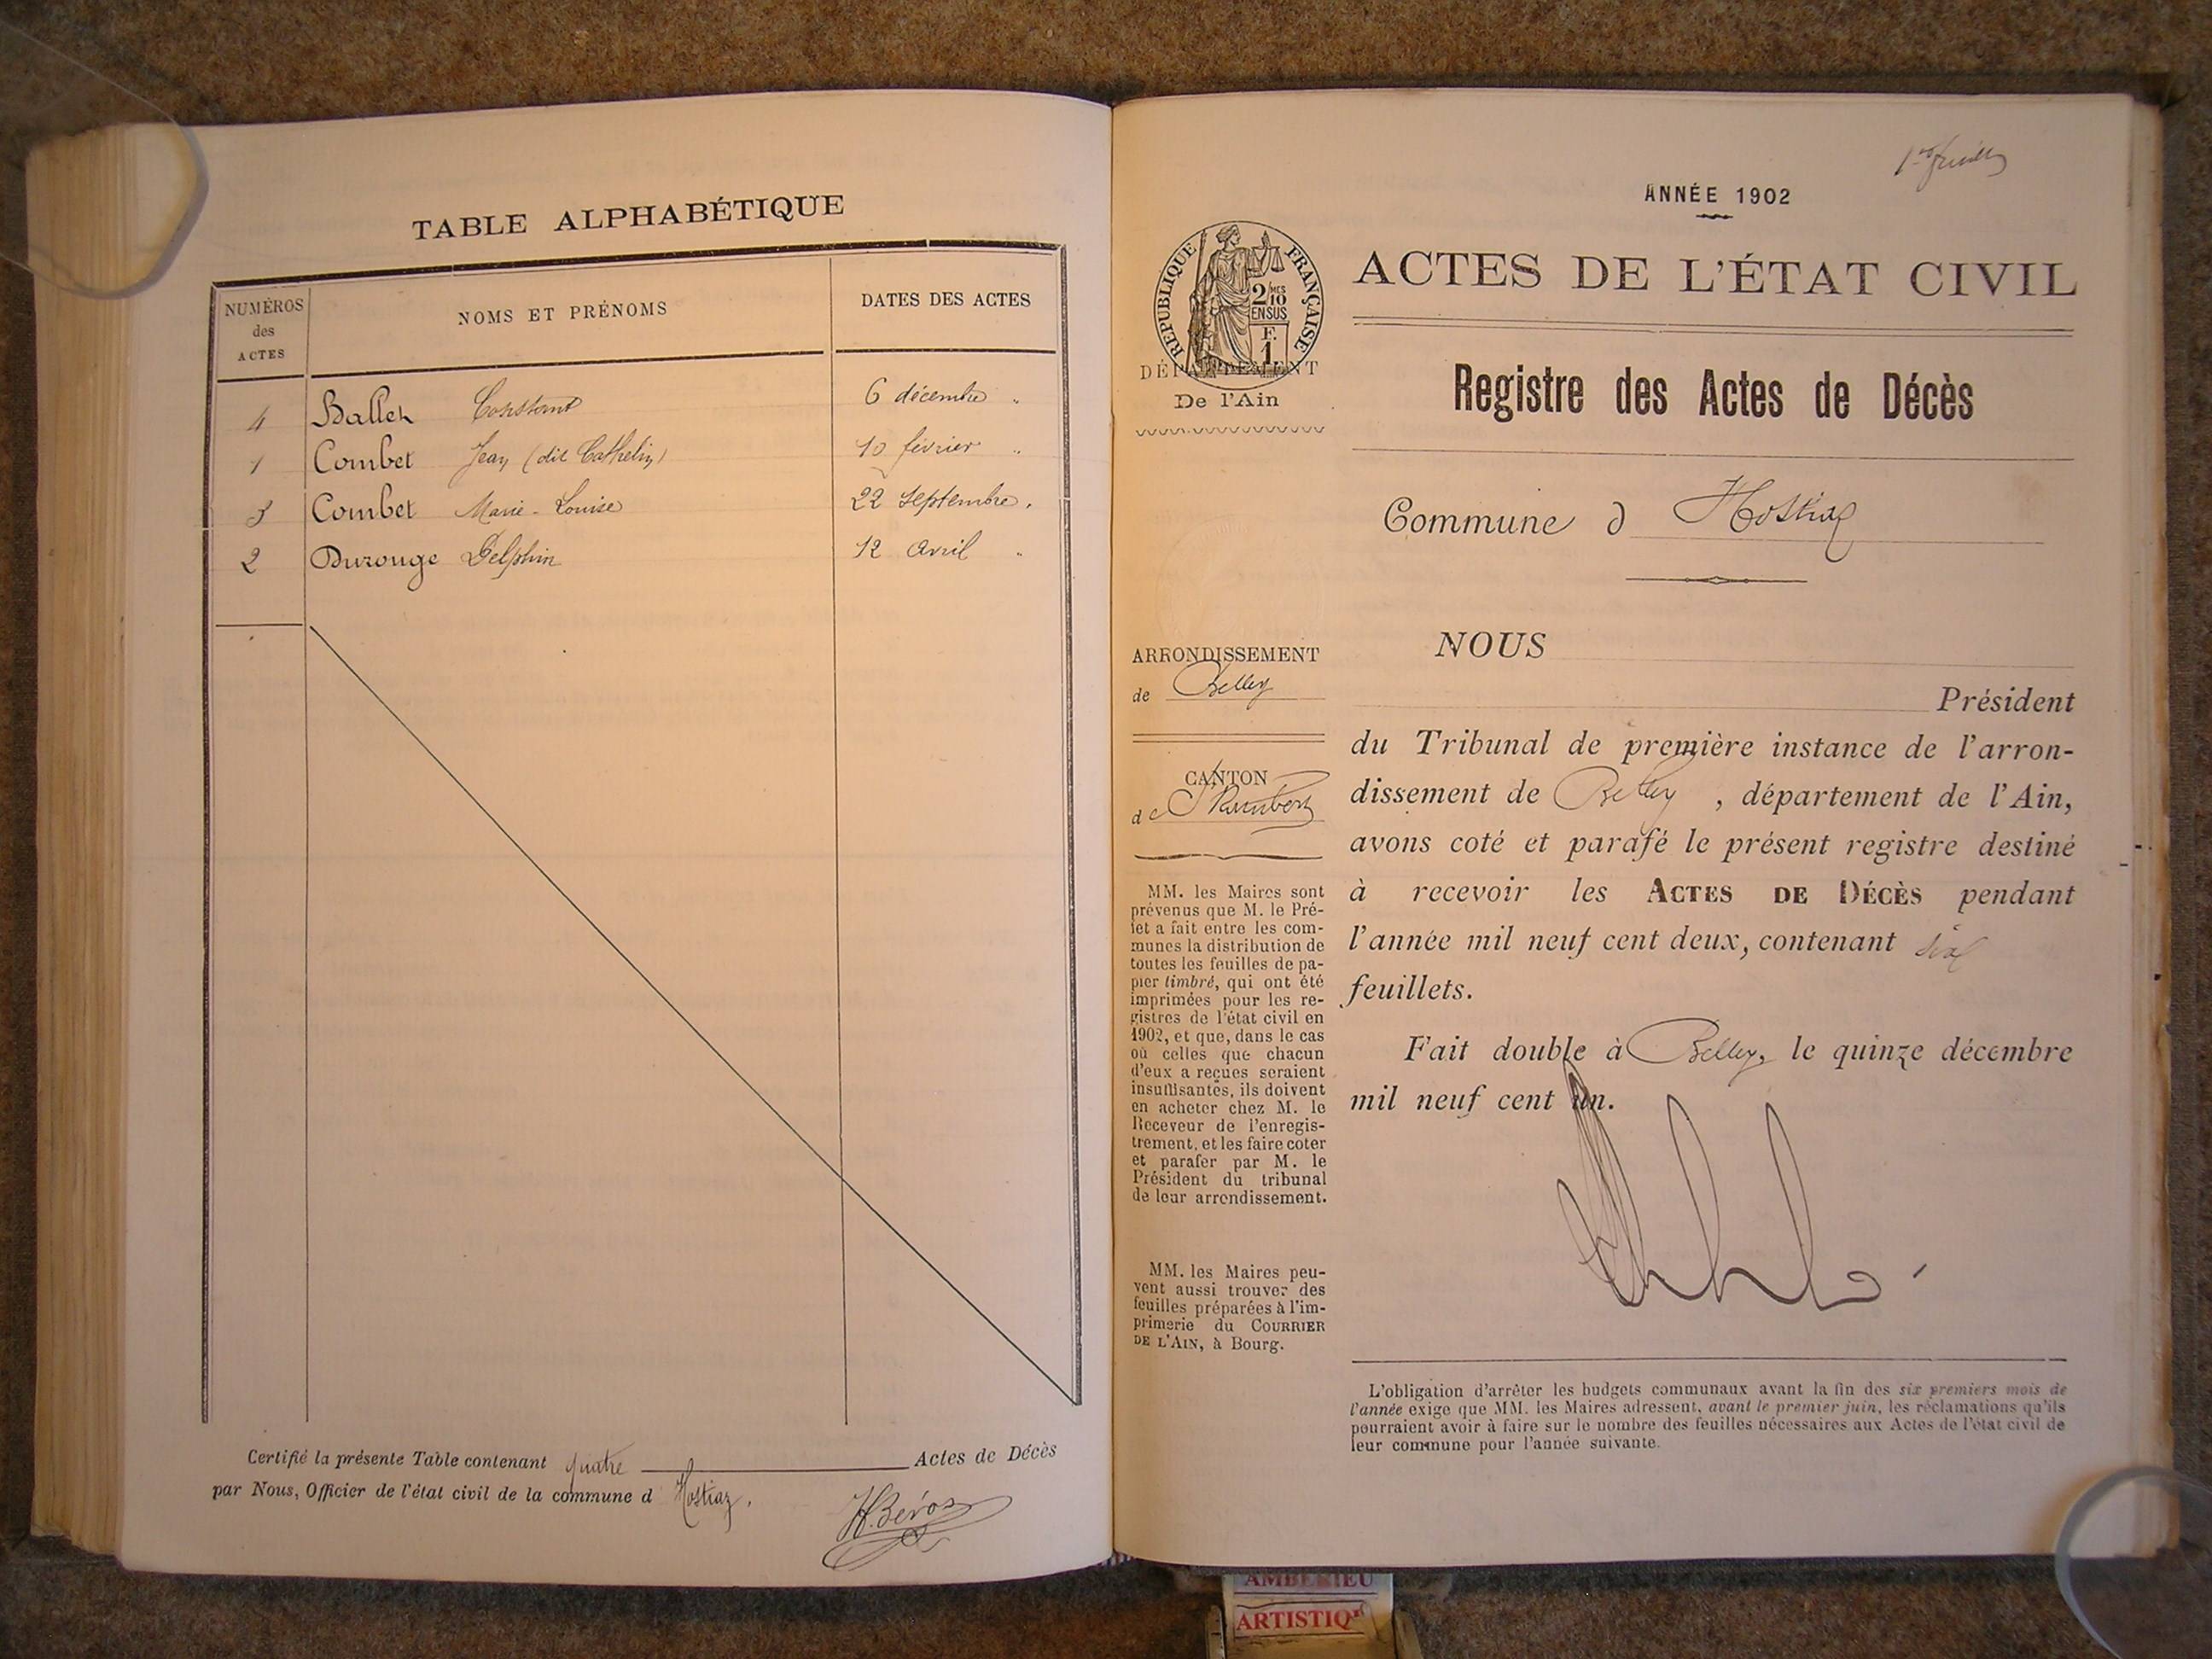 TABLE ALPHABÉTIQUE
NUMÉROS
des
ACTES
NOMS ET PRÉNOMS
DATES DES ACTES
4 Ballet Constant 6 décembre "
1 Combet Jean (dit Cathelin) 10 février "
3 Combet Marie-Louise 22 septembre "
2 Durouge Delphin 12 avril "
Certifié la présente Table contenant quatre Actes de Décès
par Nous, Officier de l'état civil de la commune d Hostiaz.
ANNÉE 1902
RÉPUBLIQUE FRANÇAISE
2/10
MES
EN SUS
F.
1.
DÉPARTEMENT
De l'Ain
ACTES DE L'ÉTAT CIVIL
Registre des Actes de Décès
Commune d Hostiaz
ARRONDISSEMENT
de Belley
CANTON
de St Rambert
MM. les Maires sont
prévenus que M. le Pré-
fet a fait entre les com-
munes la distribution de
toutes les feuilles de pa-
pier timbré, qui ont été
imprimées pour les re-
gistres de l'état civil en
1902, et que, dans le cas
où celles que chacun
d'eux a reçues seraient
insuffisantes, ils doivent
en acheter chez M. le
Receveur de l'enregis-
trement, et les faire coter
et parafer par M. le
Président du tribunal
de leur arrondissement.
MM. les Maires peu-
vent aussi trouver des
feuilles préparées à l'im-
primerie du COURRIER
DE L'AIN, à Bourg.
NOUS
Président
du Tribunal de première instance de l'arron-
dissement de Belley, département de l'Ain,
avons coté et parafé le présent registre destiné
à recevoir les ACTES DE DÉCÈS pendant
l'année mil neuf cent deux, contenant six
feuillets.
Fait double à Belley, le quinze décembre
mil neuf cent un.
L'obligation d'arrêter les budgets communaux avant la fin des six premiers mois de
l'année exige que MM. les Maires adressent, avant le premier juin, les réclamations qu'ils
pourraient avoir à faire sur le nombre des feuilles nécessaires aux Actes de l'état civil de
leur commune pour l'année suivante.
AMBERIEU
ARTISTIQ